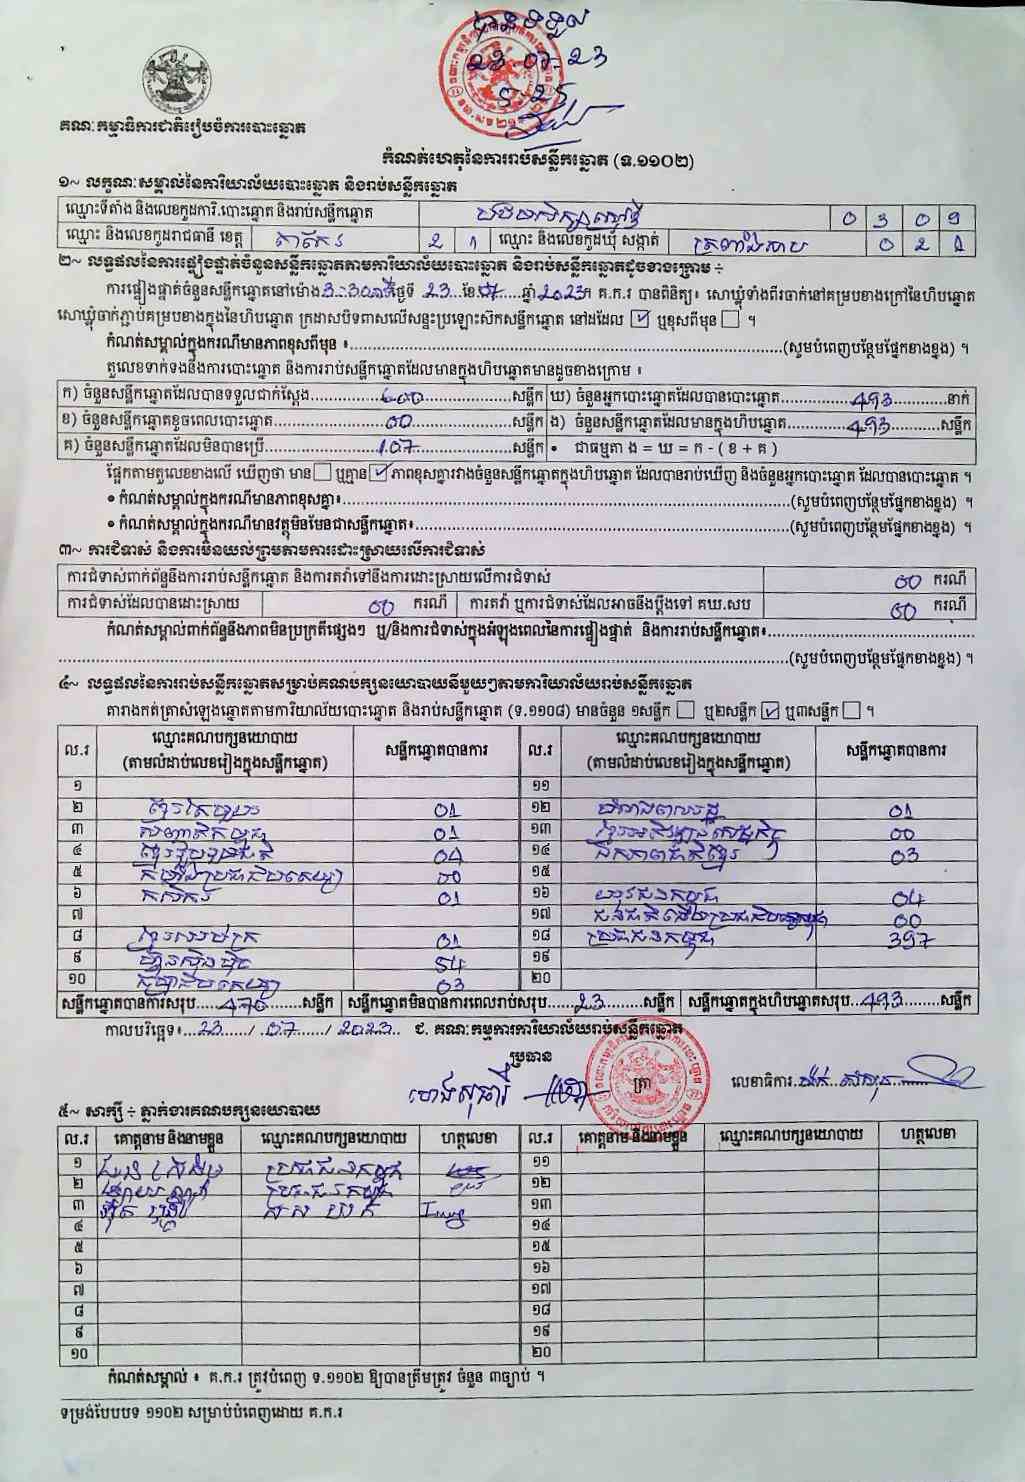 បានទទួល
23 07 23
គណៈកម្មាធិការជាតិរៀបចំការបោះឆ្នោត
កំណត់ហេតុនៃការរាប់សន្លឹកឆ្នោត (ទ.១១០២)
១~ លក្ខណៈសម្គាល់នៃការិយាល័យបោះឆ្នោត និងរាប់សន្លឹកឆ្នោត
ឈ្មោះទីតាំង និងលេខកូដការិ.បោះឆ្នោត និងរាប់សន្លឹកឆ្នោត 0 3 0 9
ឈ្មោះ និងលេខកូដរាជធានី ខេត្ត តាកែវ 2 1 ឈ្មោះ និងលេខកូដឃុំ សង្កាត់ 0 2 1
២~ លទ្ធផលនៃការផ្ទៀងផ្ទាត់ចំនួនសន្លឹកឆ្នោតតាមការិយាល័យបោះឆ្នោត និងរាប់សន្លឹកឆ្នោតដូចខាងក្រោម ÷
ការផ្ទៀងផ្ទាត់ចំនួនសន្លឹកឆ្នោតនៅម៉ោង 3:30 ថ្ងៃទី 23 ខែ 07 ឆ្នាំ 2023 ។ គ.ក.រ បានពិនិត្យ៖ សោឃ្លុំទាំងពីរចាក់នៅគម្របខាងក្រៅនៃហិបឆ្នោត
សោឃ្លុំចាក់ភ្ជាប់គម្របខាងក្នុងនៃហិបឆ្នោត ក្រដាសបិទពាសលើសន្ទះប្រឡោះស៊កសន្លឹកឆ្នោត នៅដដែល ☑ ឬខុសពីមុន ☐ ។
កំណត់សម្គាល់ក្នុងករណីមានភាពខុសពីមុន ៖ (សូមបំពេញបន្ថែមផ្នែកខាងខ្នង) ។
តួលេខទាក់ទងនឹងការបោះឆ្នោត និងការរាប់សន្លឹកឆ្នោតដែលមានក្នុងហិបឆ្នោតមានដូចខាងក្រោម ៖
ក) ចំនួនសន្លឹកឆ្នោតដែលបានទទួលជាក់ស្ដែង 600 សន្លឹក ឃ) ចំនួនអ្នកបោះឆ្នោតដែលបានបោះឆ្នោត 493 នាក់
ខ) ចំនួនសន្លឹកឆ្នោតខូចពេលបោះឆ្នោត 00 សន្លឹក ង) ចំនួនសន្លឹកឆ្នោតដែលមានក្នុងហិបឆ្នោត 493 សន្លឹក
គ) ចំនួនសន្លឹកឆ្នោតដែលមិនបានប្រើ 107 សន្លឹក • ជាធម្មតា ង = ឃ = ក - ( ខ + គ )
ផ្អែកតាមតួលេខខាងលើ ឃើញថា មាន ☐ ឬគ្មាន ☑ ភាពខុសគ្នារវាងចំនួនសន្លឹកឆ្នោតក្នុងហិបឆ្នោត ដែលបានរាប់ឃើញ និងចំនួនអ្នកបោះឆ្នោត ដែលបានបោះឆ្នោត ។
• កំណត់សម្គាល់ក្នុងករណីមានភាពខុសគ្នា៖ (សូមបំពេញបន្ថែមផ្នែកខាងខ្នង) ។
• កំណត់សម្គាល់ក្នុងករណីមានវត្ថុមិនមែនជាសន្លឹកឆ្នោត៖ (សូមបំពេញបន្ថែមផ្នែកខាងខ្នង) ។
៣~ ការជំទាស់ និងការមិនយល់ព្រមតាមការដោះស្រាយលើការជំទាស់
ការជំទាស់ពាក់ព័ន្ធនឹងការរាប់សន្លឹកឆ្នោត និងការតវ៉ាទៅនឹងការដោះស្រាយលើការជំទាស់ 00 ករណី
ការជំទាស់ដែលបានដោះស្រាយ 00 ករណី ការតវ៉ា ឬការជំទាស់ដែលអាចនឹងប្ដឹងទៅ គឃ.សប 00 ករណី
កំណត់សម្គាល់ពាក់ព័ន្ធនឹងភាពមិនប្រក្រតីផ្សេងៗ ឬ/និងការជំទាស់ក្នុងអំឡុងពេលនៃការផ្ទៀងផ្ទាត់ និងការរាប់សន្លឹកឆ្នោត៖
(សូមបំពេញបន្ថែមផ្នែកខាងខ្នង) ។
៤~ លទ្ធផលនៃការរាប់សន្លឹកឆ្នោតសម្រាប់គណបក្សនយោបាយនីមួយៗតាមការិយាល័យរាប់សន្លឹកឆ្នោត
តារាងកត់ត្រាសំឡេងឆ្នោតតាមការិយាល័យបោះឆ្នោត និងរាប់សន្លឹកឆ្នោត (ទ.១១០៨) មានចំនួន ១សន្លឹក ☐ ឬ២សន្លឹក ☑ ឬ៣សន្លឹក ☐ ។
ល.រ ឈ្មោះគណបក្សនយោបាយ (តាមលំដាប់លេខរៀងក្នុងសន្លឹកឆ្នោត) សន្លឹកឆ្នោតបានការ ល.រ ឈ្មោះគណបក្សនយោបាយ (តាមលំដាប់លេខរៀងក្នុងសន្លឹកឆ្នោត) សន្លឹកឆ្នោតបានការ
១ ១១
២ 01 ១២ 01
៣ 01 ១៣ 00
៤ ខ្មែររួបរួមជាតិ 04 ១៤ ឯកភាពជាតិខ្មែរ 03
៥ 00 ១៥
៦ កសិករ 01 ១៦ យុវជនកម្ពុជា 04
៧ ១៧ 00
៨ 01 ១៨ ប្រជាជនកម្ពុជា 397
៩ ហ្វ៊ុនស៊ិនប៉ិច 54 ១៩
១០ 03 ២០
សន្លឹកឆ្នោតបានការសរុប 470 សន្លឹក សន្លឹកឆ្នោតមិនបានការពេលរាប់សរុប 23 សន្លឹក សន្លឹកឆ្នោតក្នុងហិបឆ្នោតសរុប 493 សន្លឹក
កាលបរិច្ឆេទ៖ 23 / 07 / 2023 ជ. គណៈកម្មការការិយាល័យរាប់សន្លឹកឆ្នោត
ប្រធាន
ត្រា លេខាធិការ
៥~ សាក្សី ÷ ភ្នាក់ងារគណបក្សនយោបាយ
ល.រ គោត្តនាម និងនាមខ្លួន ឈ្មោះគណបក្សនយោបាយ ហត្ថលេខា ល.រ គោត្តនាម និងនាមខ្លួន ឈ្មោះគណបក្សនយោបាយ ហត្ថលេខា
១ ប្រជាជនកម្ពុជា ១១
២ ប្រជាជនកម្ពុជា ១២
៣ ១៣
៤ ១៤
៥ ១៥
៦ ១៦
៧ ១៧
៨ ១៨
៩ ១៩
១០ ២០
កំណត់សម្គាល់ ៖ គ.ក.រ ត្រូវបំពេញ ទ.១១០២ ឱ្យបានត្រឹមត្រូវ ចំនួន ៣ច្បាប់ ។
ទម្រង់បែបបទ ១១០២ សម្រាប់បំពេញដោយ គ.ក.រ